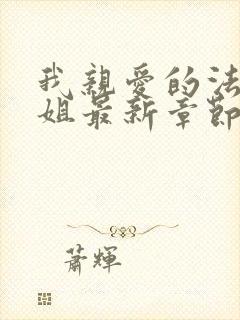 我親愛的法
姐最新章節
蕭輝